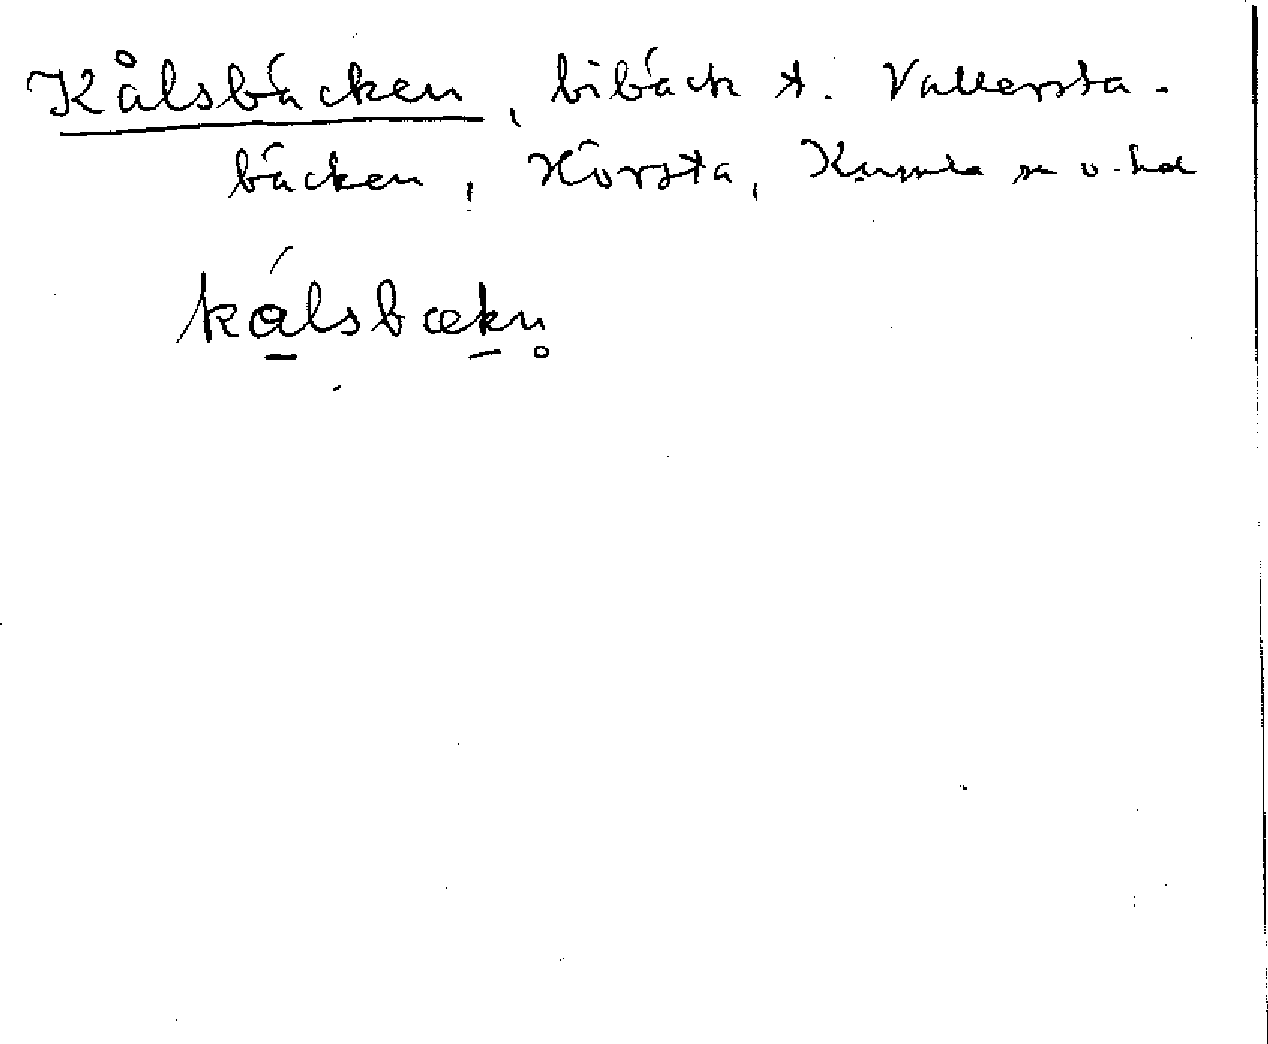 Kålsbäcken, bibäck t. Vallersta-
bäcken, Hörsta, Kumla sn o. hd
kálsbækn̥